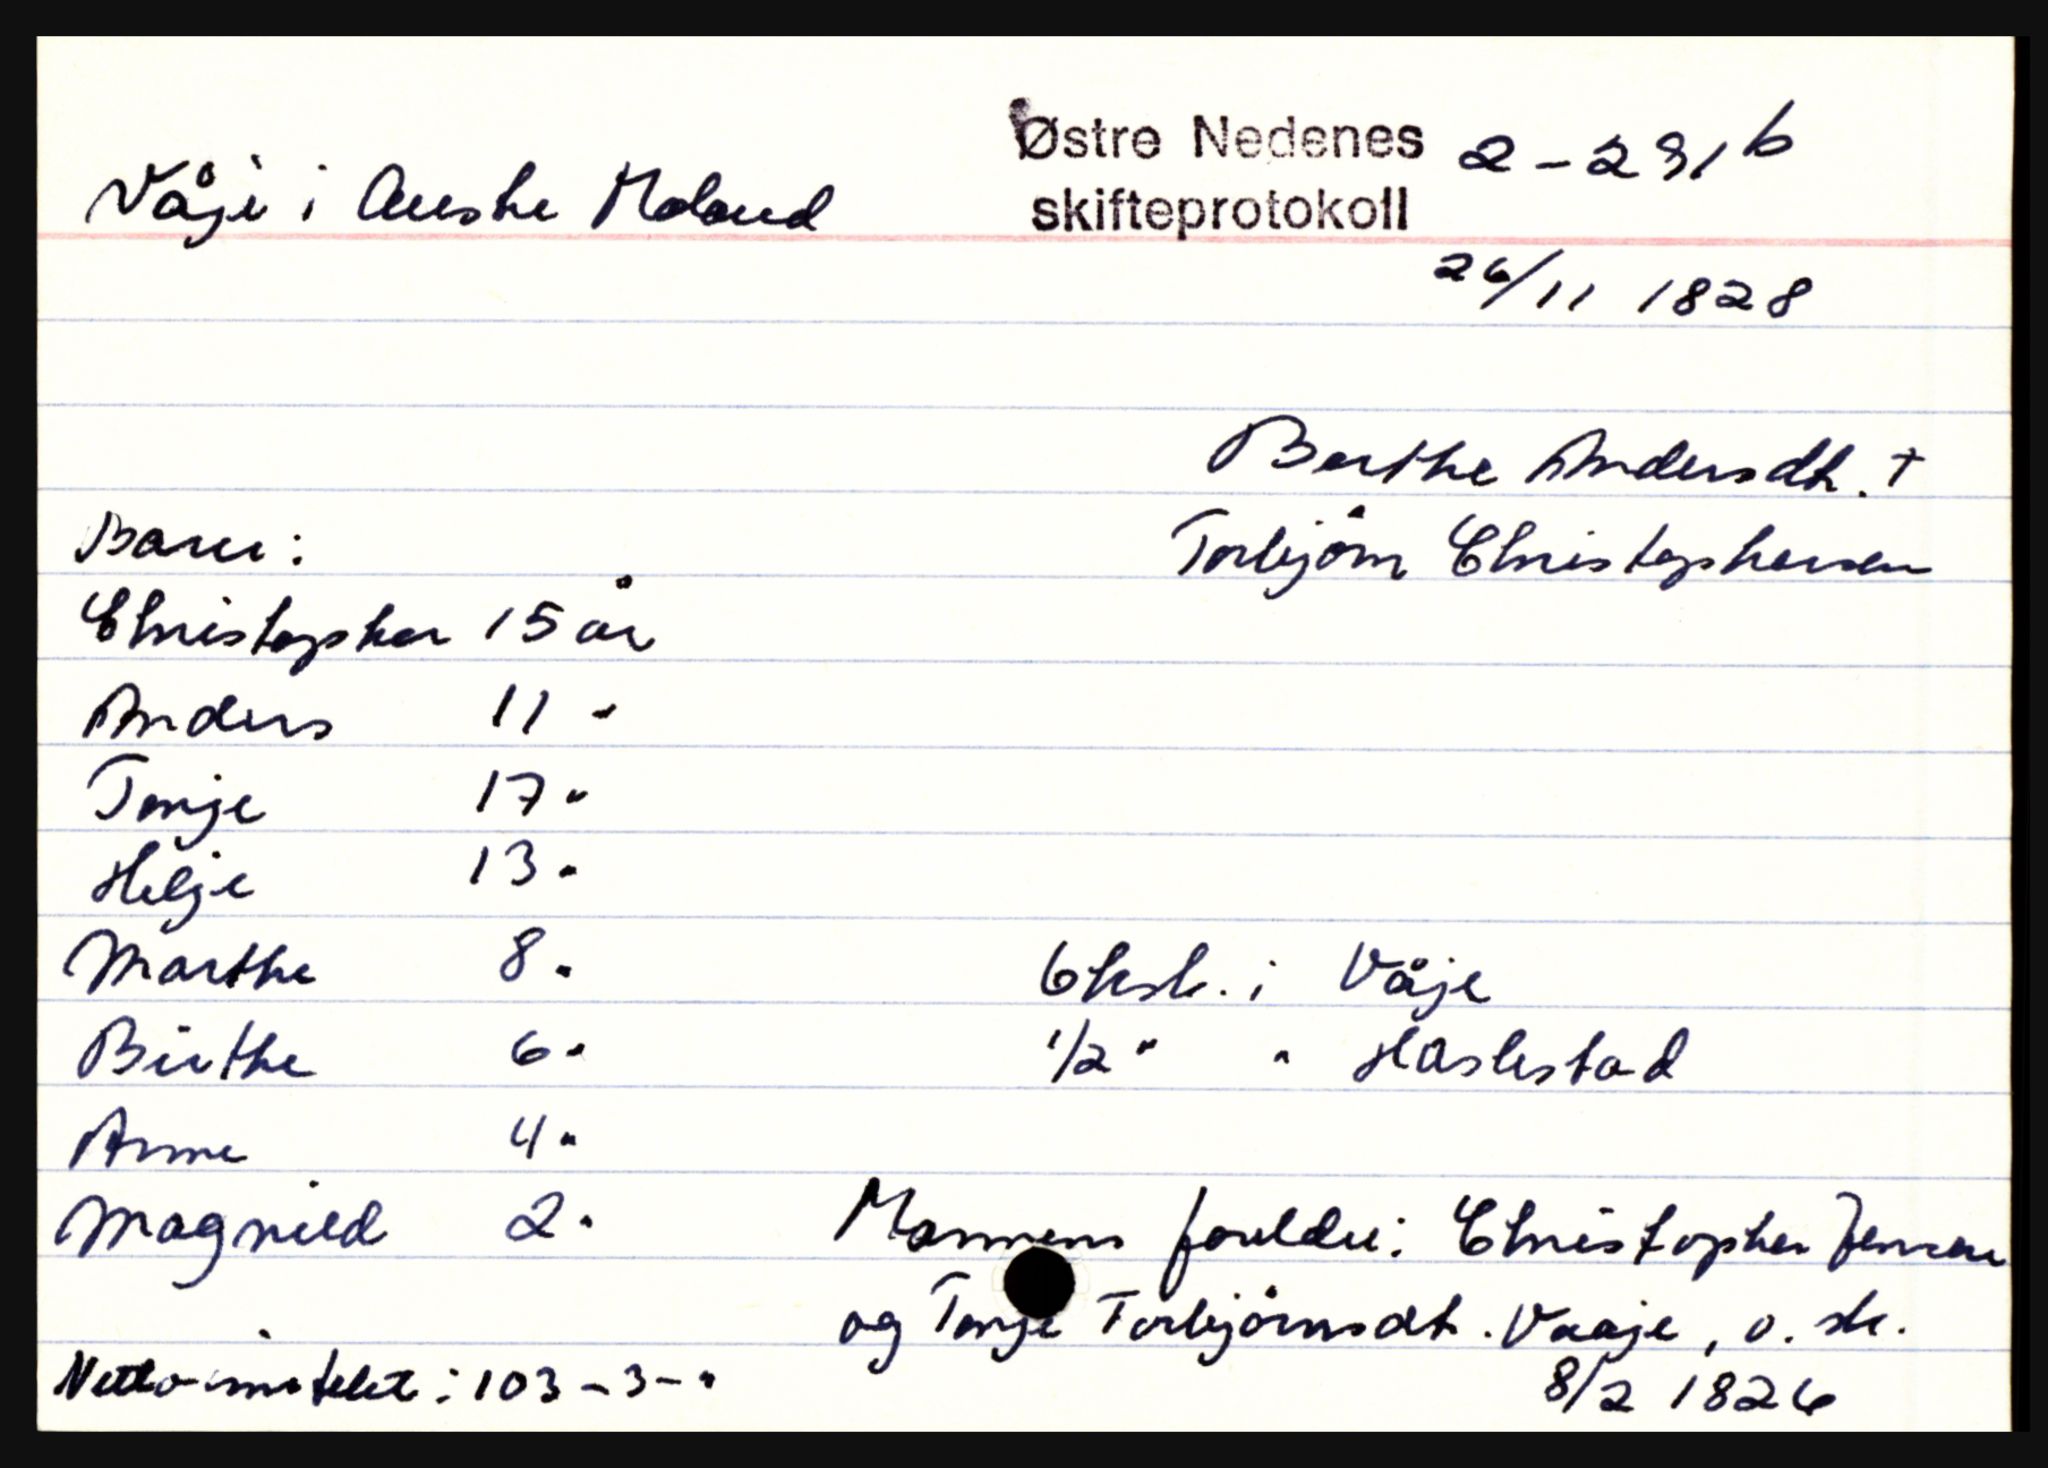 Østre Nedenes 2-291 b
Våje i Austre Moland skifteprotokoll
26/11 1828
Berthe Andersdt. +
Barn: Torbjörn Christophersen
Christopher 15 år
Anders 11 "
Tonje 17 "
Helje 13 "
Marthe 8 "
6 hsk. i Våje
Birthe 6 "
1/2 " " Haslestad
Anne 4 "
Magnild 2 "
Mannens foreldre: Christopher Jensen
og Tonje Torbjörnsdt. Vaaje, o. sk.
Netto innteket: 103-3-"
8/2 1826